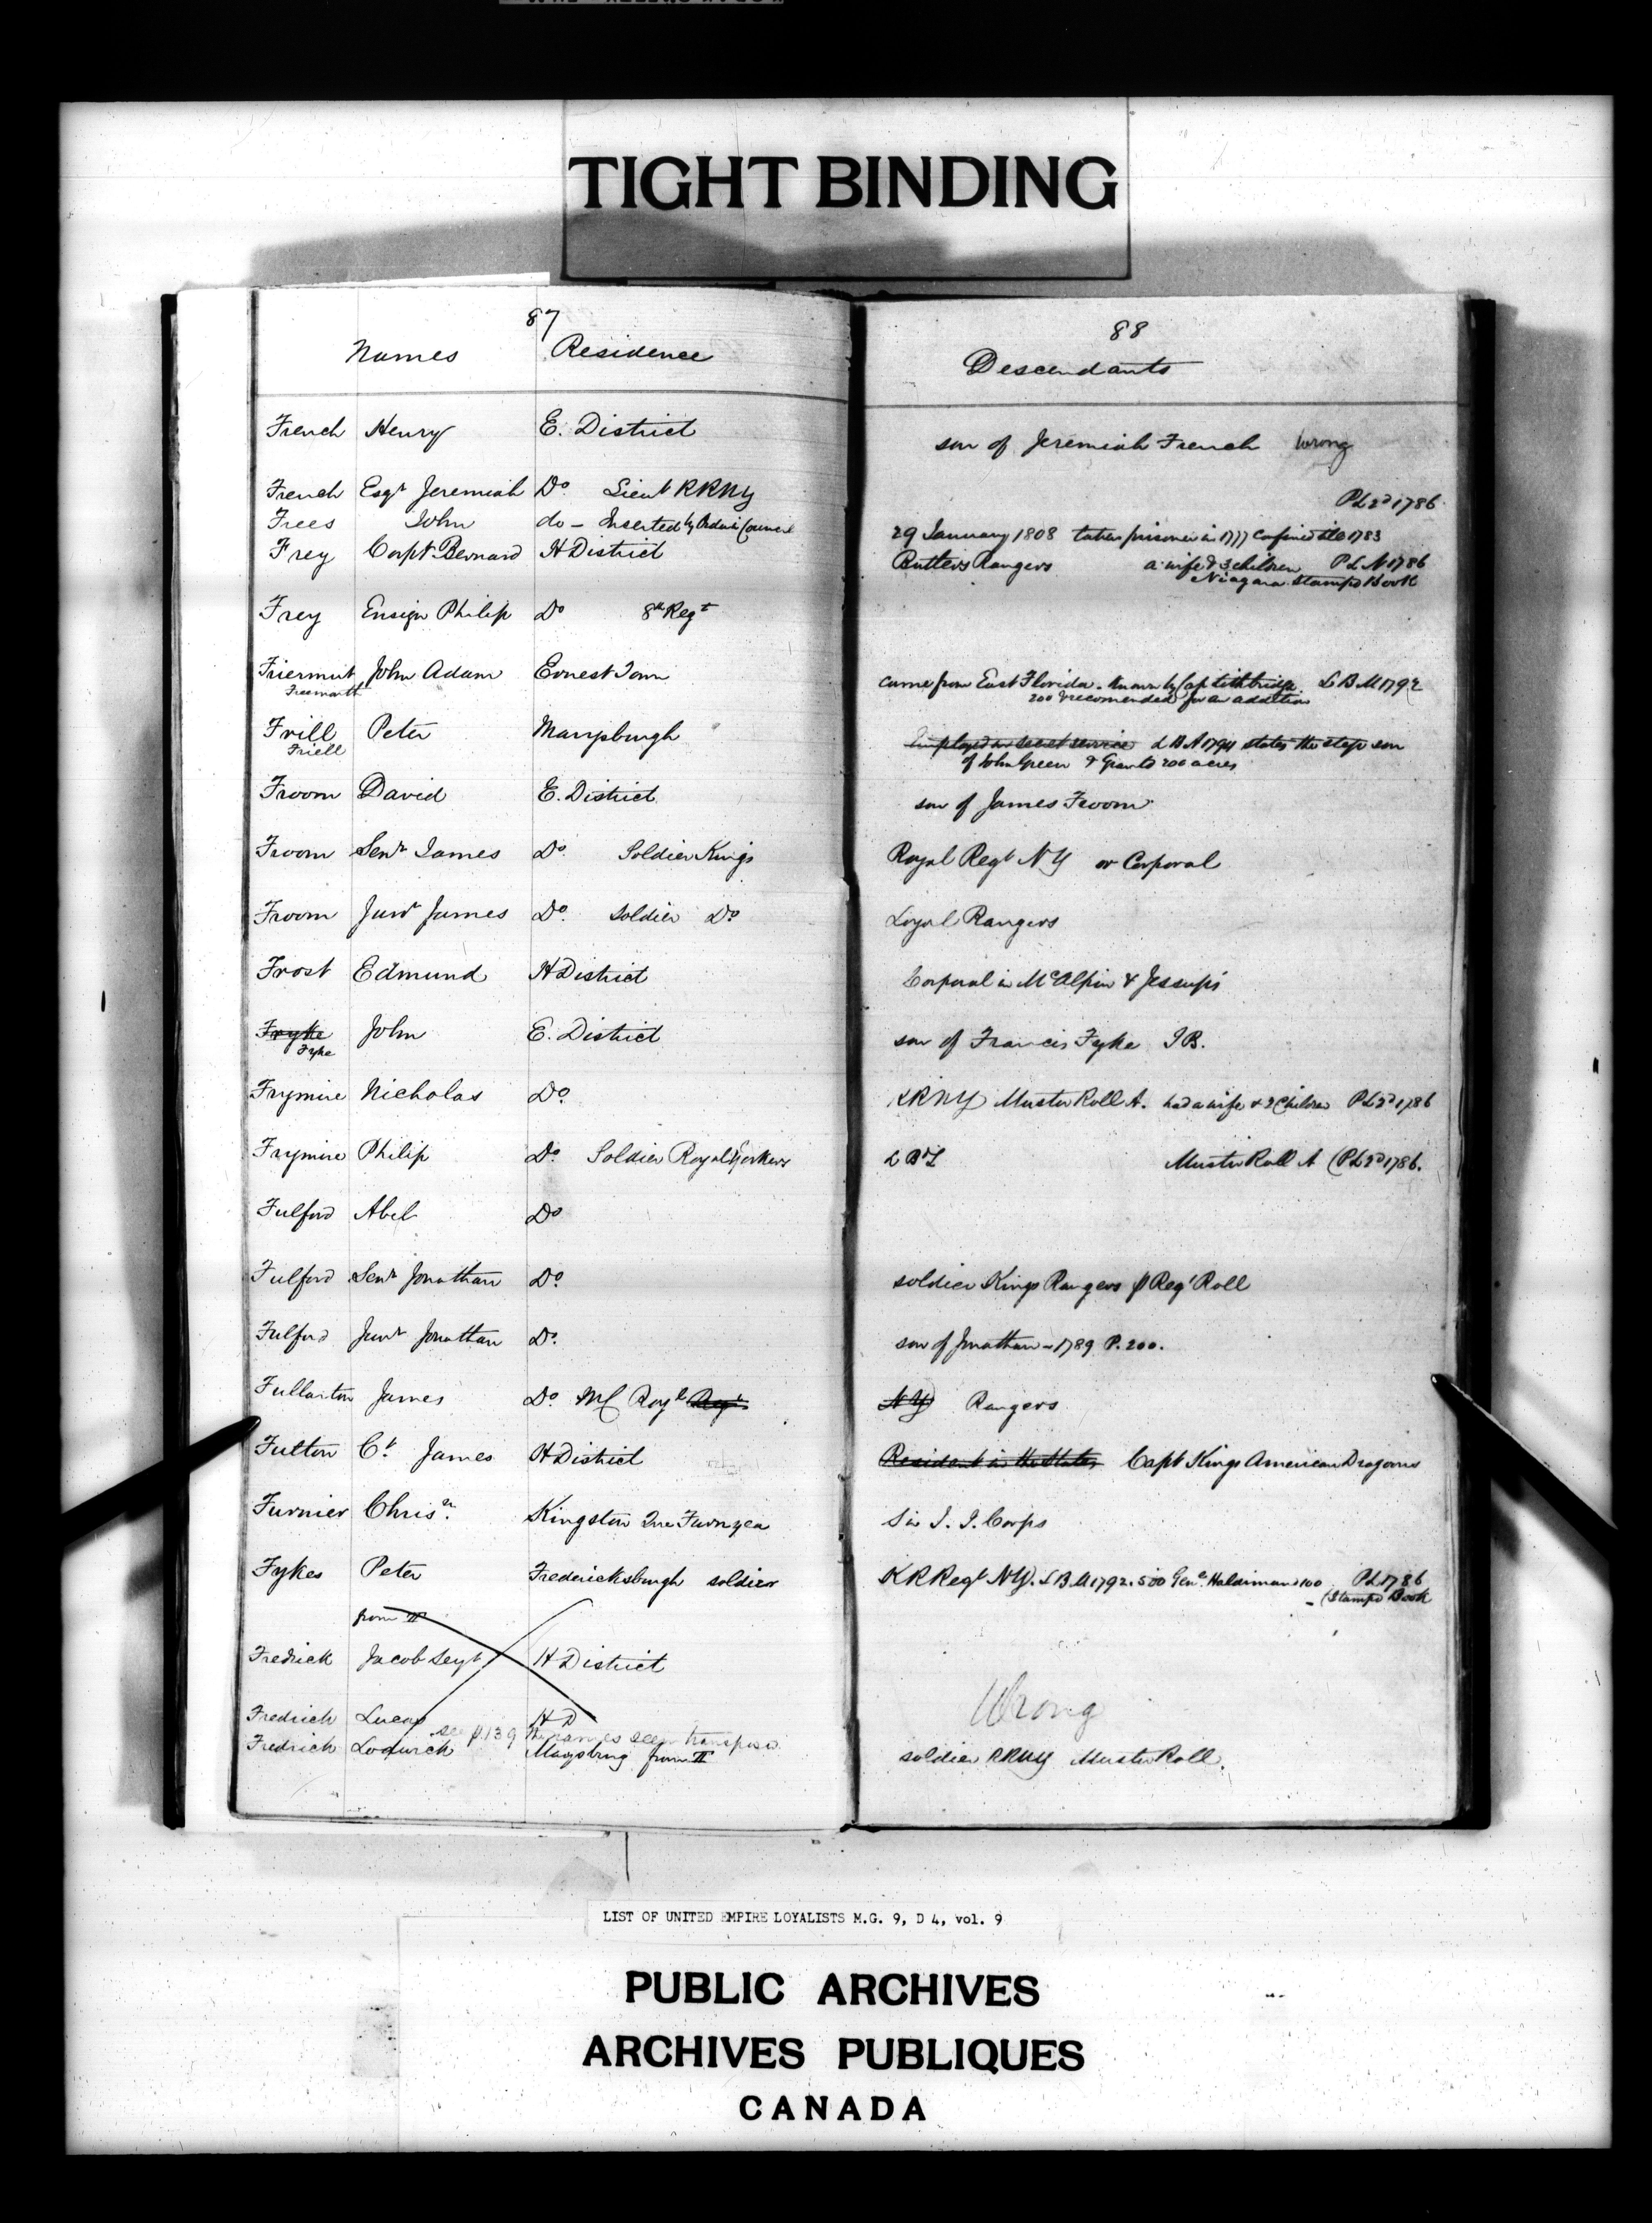 TIGHT BINDING
87
Names Residence
French Henry E. District
French Esqr Jeremiah Do Lieut RRNY
Frees John do - Inserted by Order in Council
Frey Capt Bernard H District
Frey Ensign Philip Do 8th Regt
Friermut John Adam Ernest Town
Freemouth
Frill Peter Marysburgh
Friell
Froom David E. District
Froom Senr James Do Soldier Kings
Froom Junr James Do. Soldier Do
Frost Edmund H District
Fryke John E. District
Fyke
Frymire Nicholas Do.
Frymire Philip Do. Soldier Royal Yorkers
Fulford Abel Do
Fulford Senr Jonathan Do.
Fulford Junr Jonathan Do.
Fullarton James Do. Mc Royl Regt
Fulton Ct. James H District
Furnier Chrisr. Kingston Que Furnyea
Fykes Peter Fredericksburgh soldier
from II
Fredrick Jacob Sergt H District
Fredrich Lucas H D
see p. 139 the names seem transposed
Fredrich Lodwick Marysburg from II
88
Descendants
son of Jeremiah French Wrong
PL 2d 1786
29 January 1808 taken prisoner in 1777 Confined till 1783
Butlers Rangers a wife & 3 children PLN 1786
Niagara Stamps Book
came from East Florida. Known by Cap LB M 1792
200 & recomended for an addition
Employed in secret service LBA 1794 states the step son
of John Green & Grants 200 acres
son of James Froom
Royal Regt NY or Corporal
Loyal Rangers
Corporal in McAlpin & Jessup's
son of Francis Fyke IB.
KRRNY Muster Roll A. had a wife & 2 Children PL 2d 1786
Muster Roll A (PL 2d 1786.
soldier Kings Rangers p Regt Roll
son of Jonathan - 1789 P. 200.
NY Rangers
Resident in the States Capt Kings American Dragoons
Sir J. J. Corps
KR Regt NY. LB M 1792. 500 Genl. Haldimand 100 PL 1786
- (Stamps Book
Wrong
soldier RRNY Muster Roll.
LIST OF UNITED EMPIRE LOYALISTS M.G. 9, D 4, vol. 9
PUBLIC ARCHIVES
ARCHIVES PUBLIQUES
CANADA